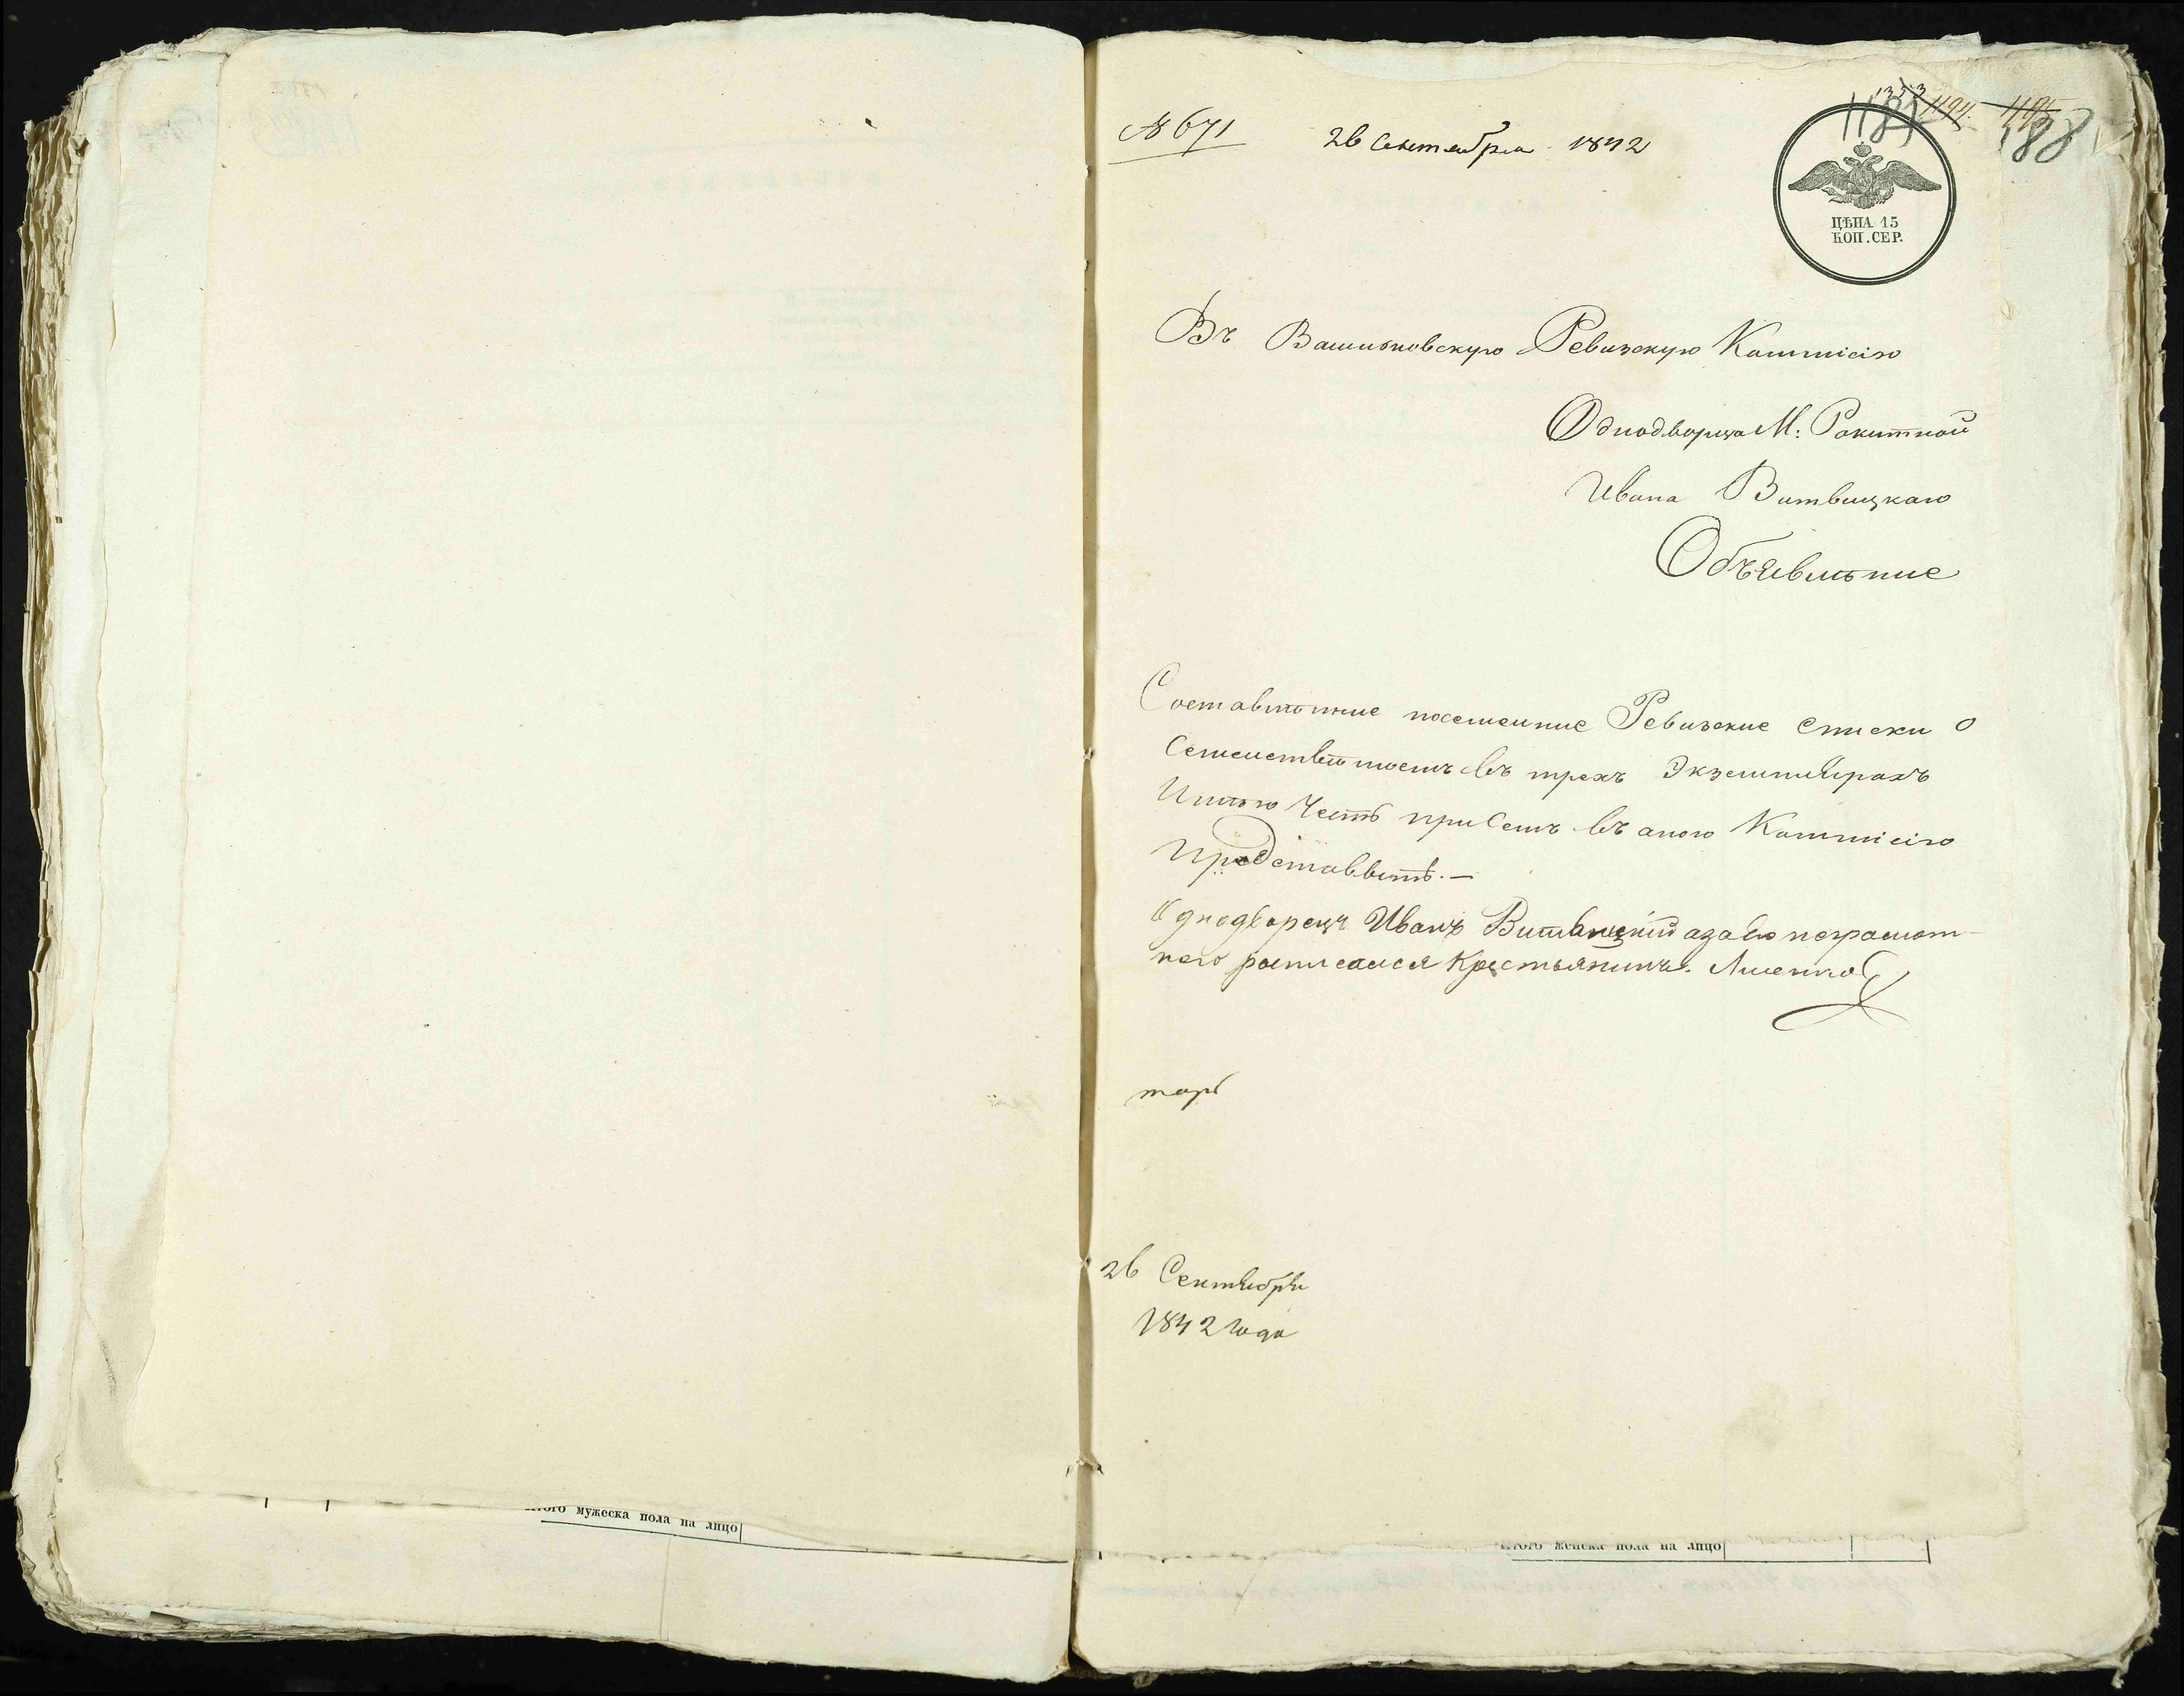 № 671
26 Сентября 1842
1353
1185 1194. 1195
188
ЦѢНА 15
КОП. СЕР.
Въ Васильковскую Ревизскую Коммисію
Однодворца М: Ракитной
Ивана Витвицкаго
Объявленіе
Составленные посемейные Ревизские списки о
Семействѣ моемъ въ трехъ Экземплярахъ
Имѣю Честь при Семъ въ оную Коммисію
Представить. —
Однодворецъ Иванъ Витвицкій а за его неграмот-
наго росписался Крестьянинъ
26 Сентября
1842 года
Итого мужеска пола на лицо
Итого женска пола на лицо